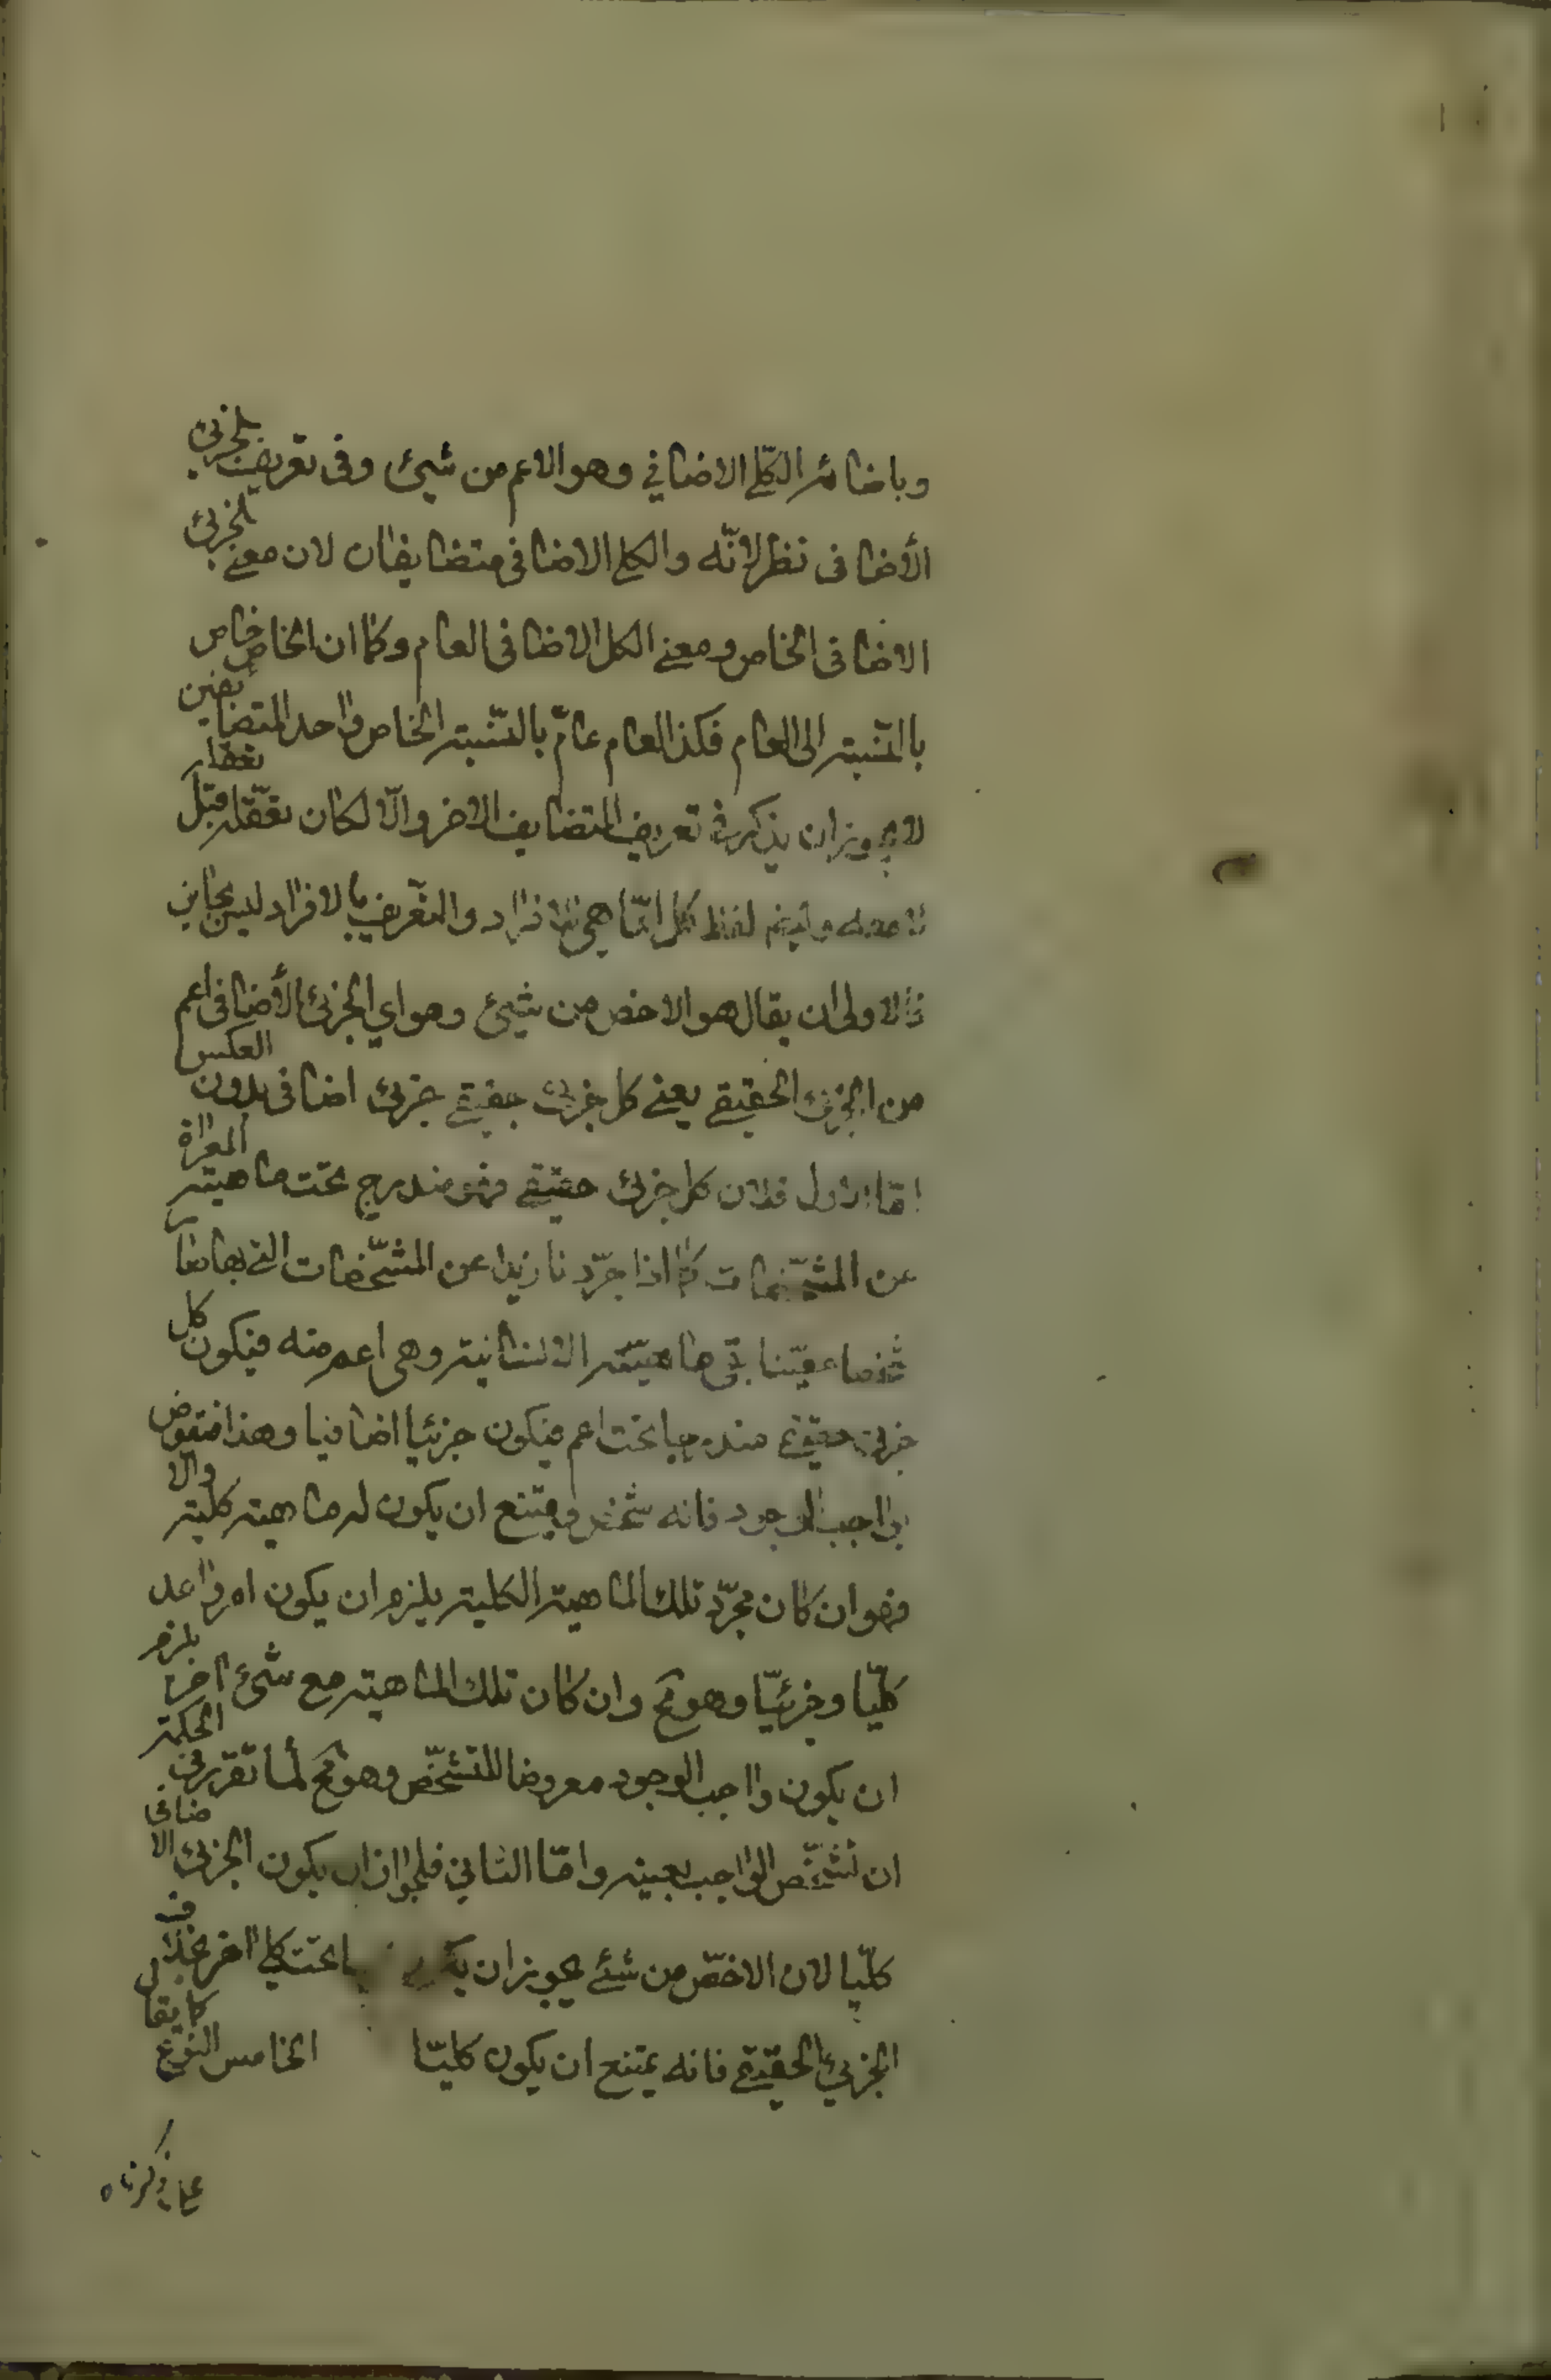 وبازائه الكلّي الاضافي وهو الاعم من شيئ وفى تعريف الجزئي
الأضافى نظر لانّه والكلي الاضافى متضايفان لان معنے الجزئي
الاضافى الخاص ومعنے الكلي الاضافى العام وكما ان الخاص خاص
بالنّسبة الى العام فكذا العام عامّ بالنّسبة الخاص واحد المتضايفين
لا يجوز ان يذكر فى تعريف المتضايف الاخر والّا لكان تعقّله قبل تعقّله
لا معه وايضا لفظ كل انّما هي للافراد والتعريف بالافراد ليس بجايز
فالاولى ان يقال هو الاخص من شيئ وهو اي الجزئ الأضافى اعم
من الجزئ الحقيقے يعنے كل جزئ حقيقے جزئ اضافى بدون العكس
امّا الاول فلان كل جزئ حقيقے فهو مندرج تحت ماهيته المعراة
عن المشخّصات كما اذا جرّدنا زيدا عن المشخّصات التي بها صار
شخصا معيّنا بقى ماهيّته الانسانية وهى اعم منه فيكون كل
جزئ حقيقے مندرجا تحت اعم فيكون جزئيا اضافيا وهذا منقوض
بواجب الوجود فانه شخص ويمتنع ان يكون له ماهية كلية والا
فهو ان كان مجرّد تلك الماهية الكلية يلزم ان يكون امر واحد
كلّيّا وجزئيّا وهو مح وان كان تلك الماهية مع شئ آخر يلزم
ان يكون واجب الوجود معروضا للتشخّص وهو مح لما تقرر فى الحكمة
ان تشخّص الواجب بعينه وامّا الثاني فلجواز ان يكون الجزئ الاضافى
كلّيا لان الاخصّ من شئے يجوز ان يكون تحت كلي اخر بخلاف
الجزئ الحقيقے فانه يمتنع ان يكون كليّا الخامس النوع كما يقال
على ما ذكرناه